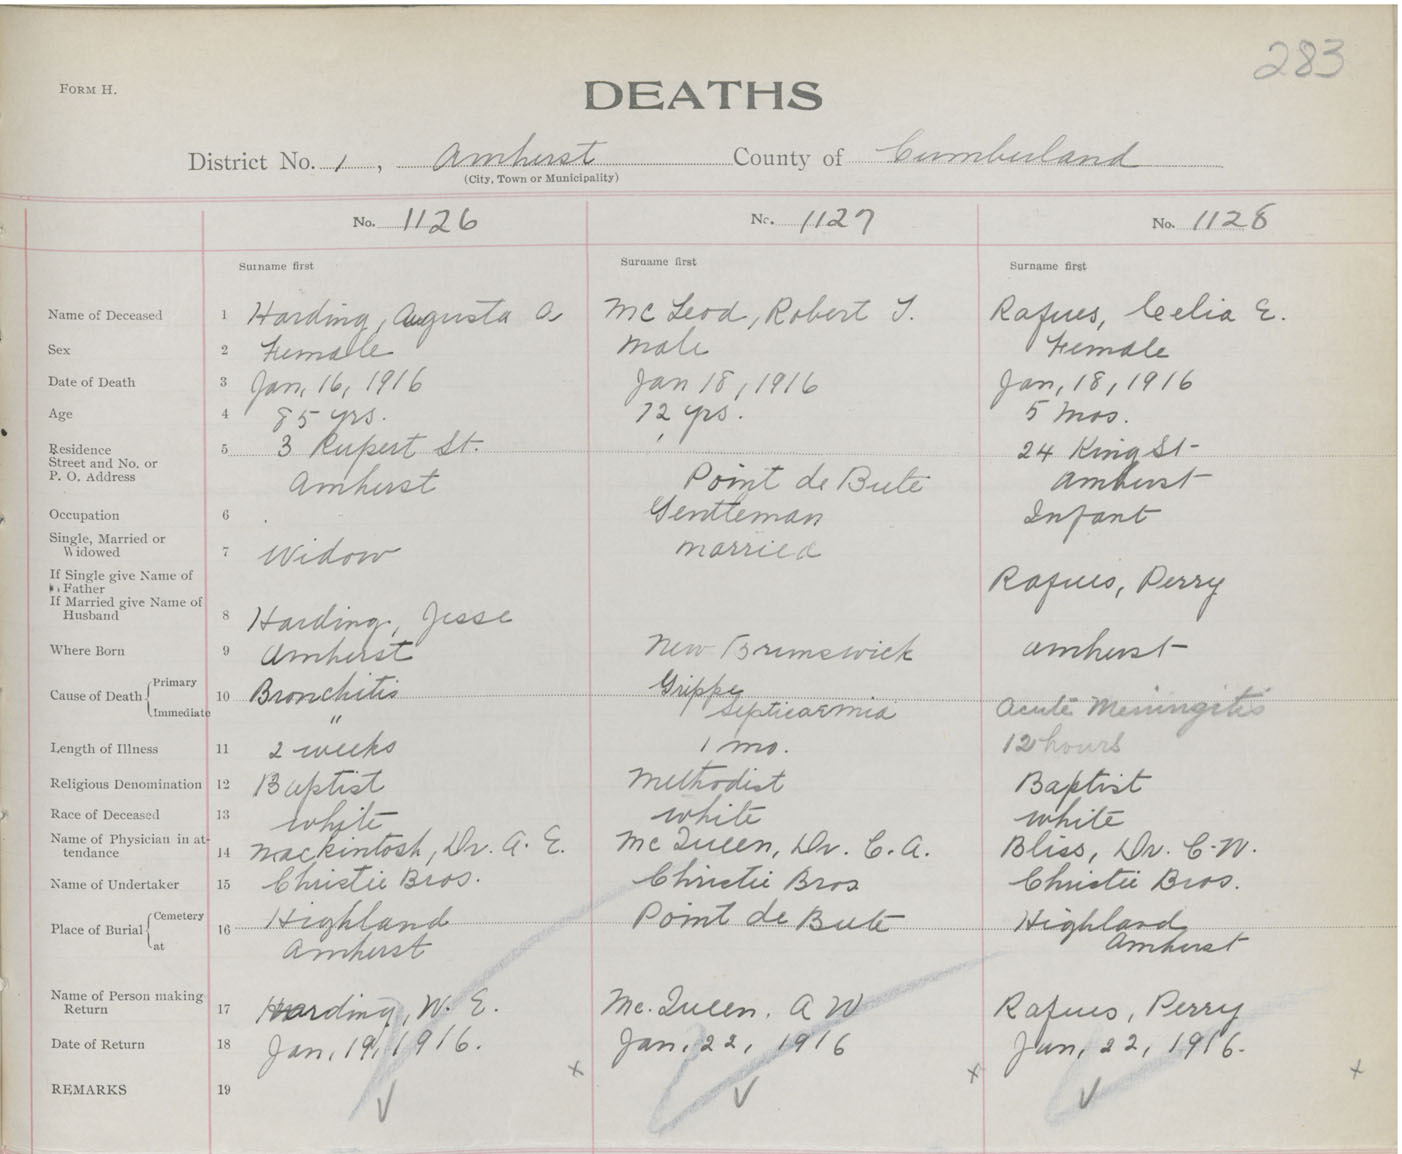 283
FORM H.
DEATHS
District No. 1, Amherst County of Cumberland
(City, Town or Municipality)
No. 1126 No. 1127 No. 1128
Surname first Surname first Surname first
Name of Deceased 1 Harding, Augusta A McLeod, Robert T. Rafues, Celia E.
Sex 2 Female Male Female
Date of Death 3 Jan, 16, 1916 Jan 18, 1916 Jan, 18, 1916
Age 4 85 yrs. 72 yrs. 5 mos.
Residence 5 3 Rupert St. 24 King St
Street and No. or
P. O. Address Amherst Point de Bute Amherst
Occupation 6 Gentleman Infant
Single, Married or
Widowed 7 Widow married
If Single give Name of
Father Rafues, Perry
If Married give Name of
Husband 8 Harding, Jesse
Where Born 9 Amherst New Brunswick Amherst
Cause of Death Primary 10 Bronchitis Grippe
Immediate " Septicaemia Acute Meningitis
Length of Illness 11 2 weeks 1 mo. 12 hours
Religious Denomination 12 Baptist Methodist Baptist
Race of Deceased 13 white white white
Name of Physician in at-
tendance 14 Mackintosh, Dr. A. E. McQueen, Dr. C. A. Bliss, Dr. C. W.
Name of Undertaker 15 Christie Bros. Christie Bros Christie Bros.
Place of Burial Cemetery 16 Highland Point de Bute Highland
at Amherst Amherst
Name of Person making
Return 17 Harding, W. E. Mc.Queen. A W Rafues, Perry
Date of Return 18 Jan, 19, 1916. Jan, 22, 1916 Jan, 22, 1916.
REMARKS 19